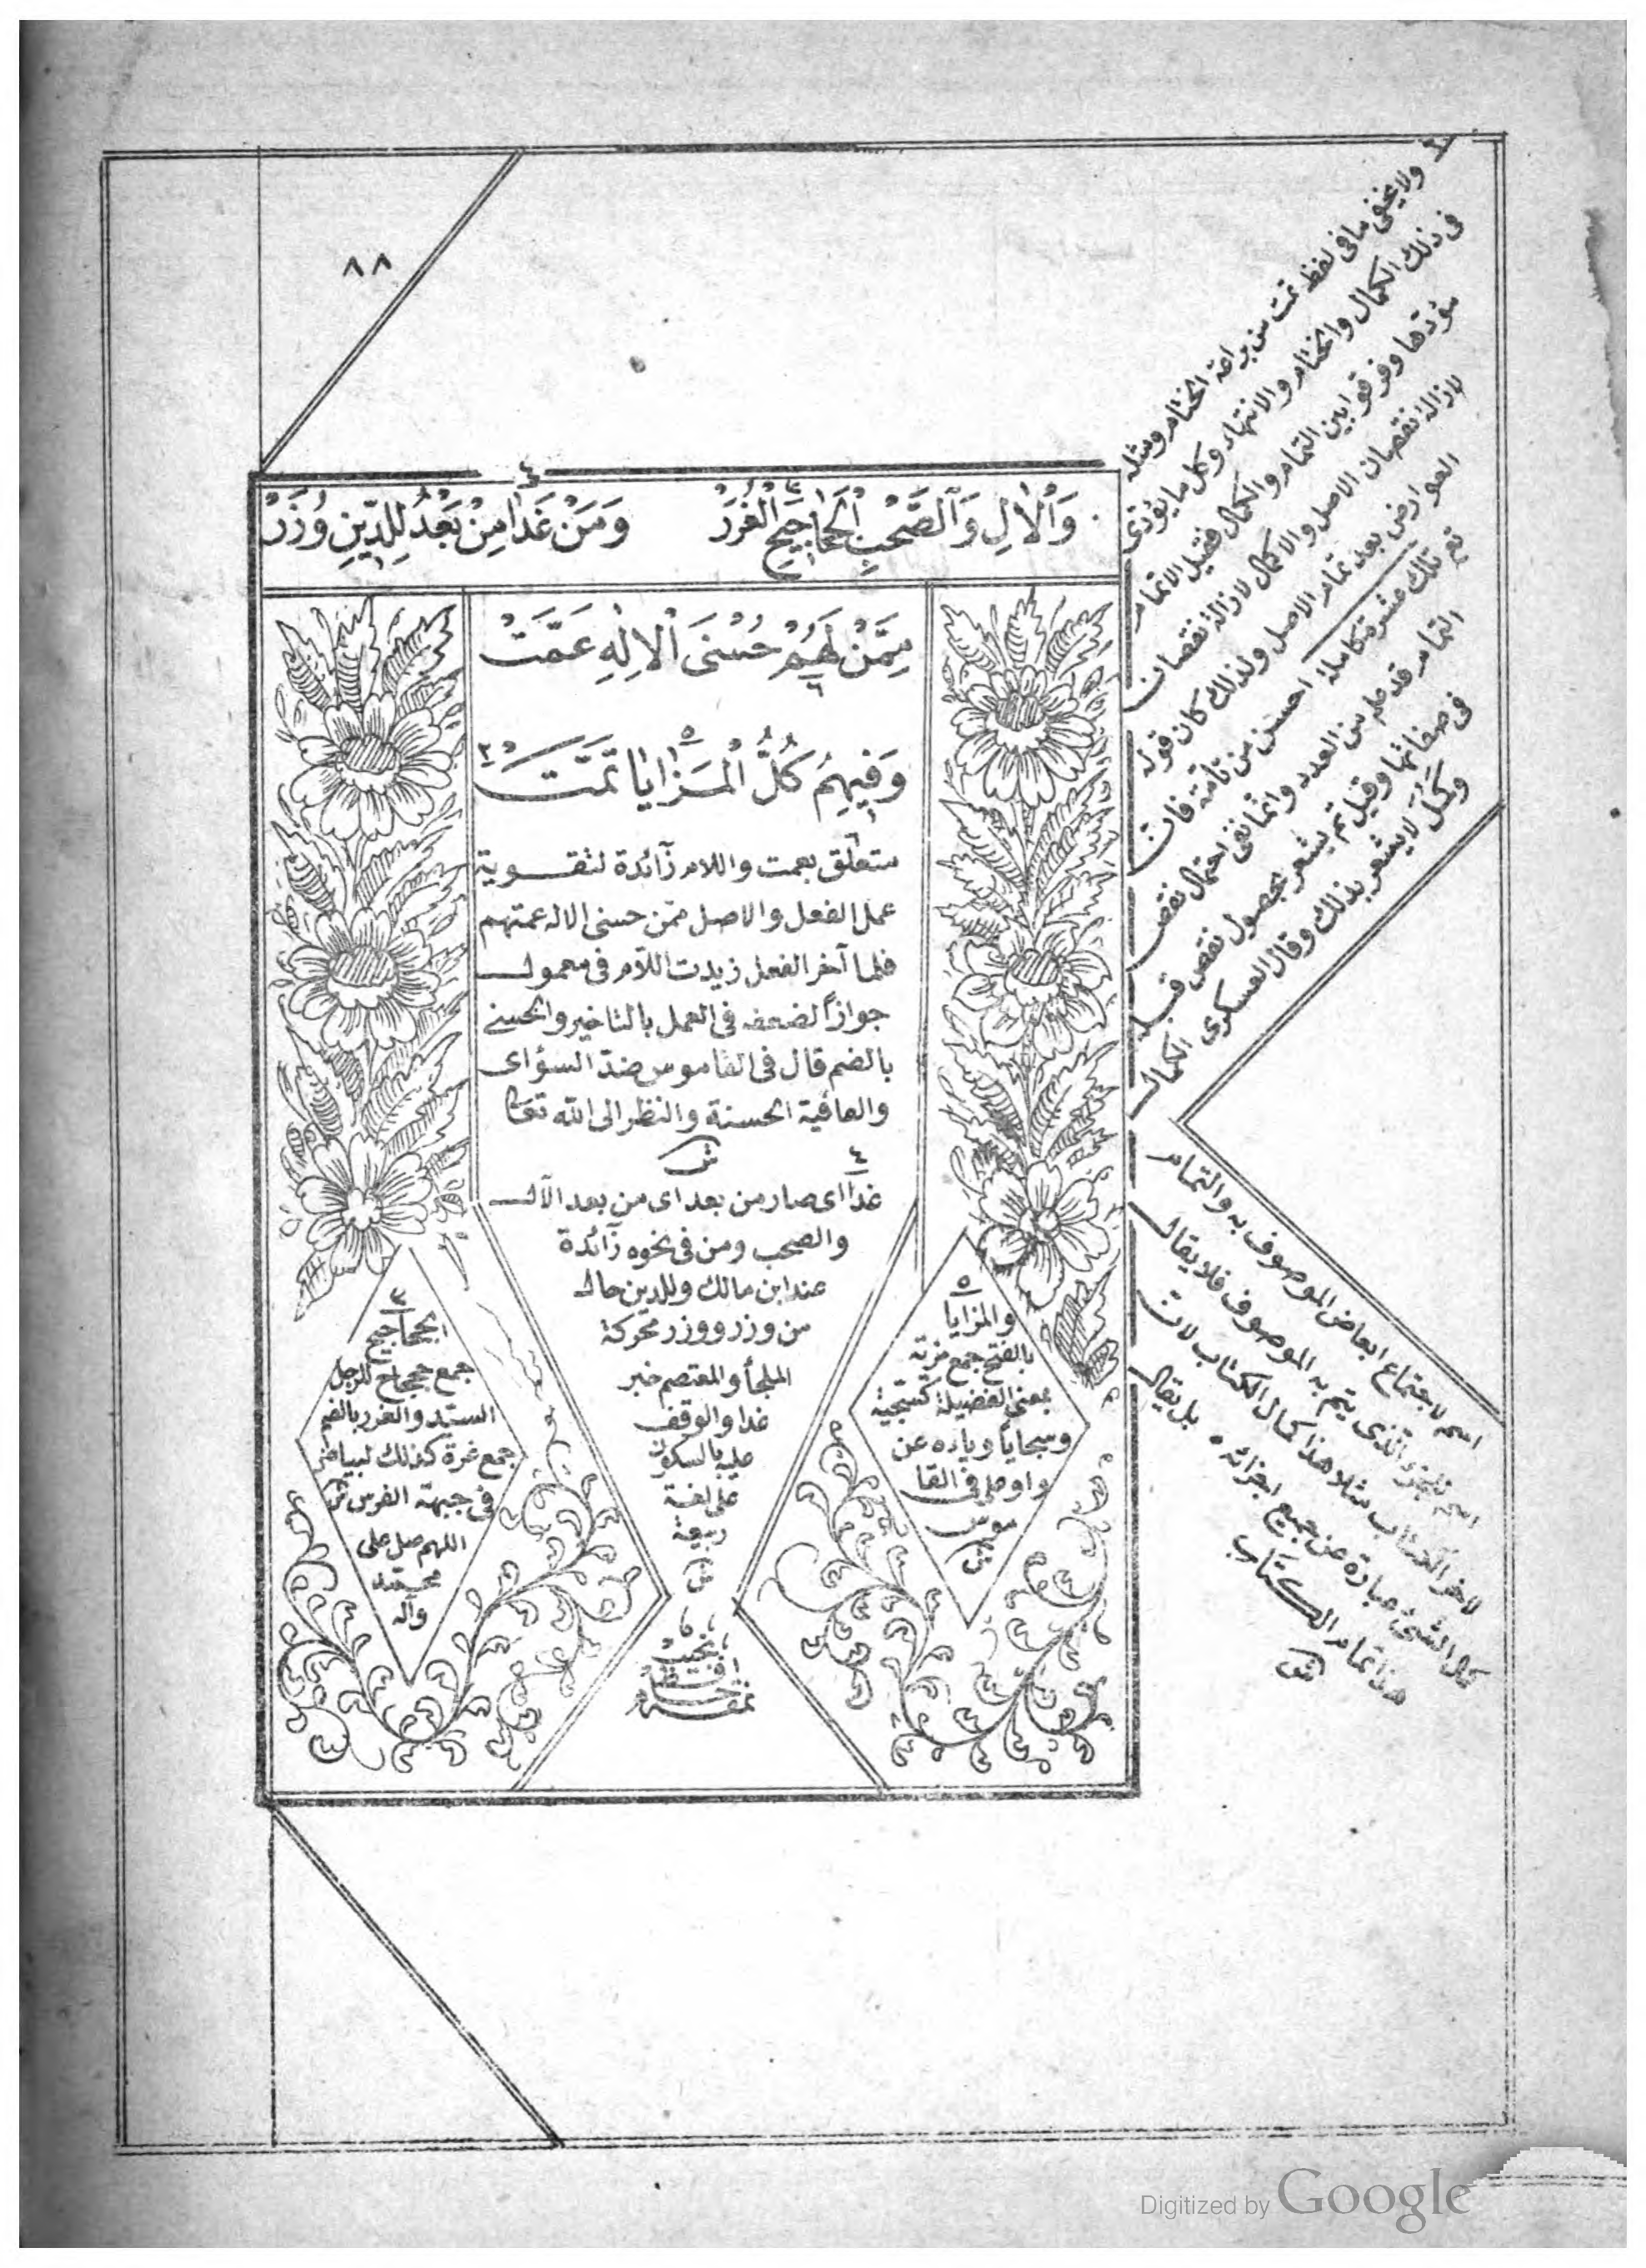 ٨٨
وَالْآلِ وَالصَّحْبِ الْجَحَاجِيحِ الْغُرَرْ وَمَنْ غَدَا مِنْ بَعْدُ لِلدِّينِ وَزَرْ
مِمَّنْ لَهُمْ حُسْنَى الْإِلٰهِ عَمَّتْ
وَفِيهِمُ كُلُّ الْمَزَايَا تَمَّتْ
متعلق بعمت واللام زآئدة لتقوية
عمل الفعل والاصل ممن حسنى الاله عمتهم
فلما آخر الفعل زيدت اللام فى معموله
جوازاً لضعفه فى العمل بالتاخير والحسنى
بالضم قال فى القاموس ضد السؤاى
والعاقبة الحسنة والنظر الى الله تعا
ش
٤
غدا اى صار من بعد اى من بعد الآل
والصحب ومن فى نحوه زآئدة
عند ابن مالك وللدين حال
من وزر ووزر محركة
الملجأ والمعتصم خبر
غدا والوقف
عليه بالسكون
على لغة
ربيعة
ش
٥
والمزايا
بالفتح جمع مزية
بمعنى الفضيلة كسجية
وسجايا وياؤه عن
واو حلى فى القا
موس
ش
٣
الجحاجيح
جمع جحجاح للرجل
السيد والغرر بالضم
جمع غرة كذلك لبياض
فى جبهة الفرس ش
اللهم صل على
محمد
وآله
ولا يخفى ما فى لفظ تمت من براعة الختام ومثله
فى ذلك الكمال والختام والانتهاء وكل ما يؤدى
مؤداها وفرقوا بين التمام والكمال فقيل الاتمام
لازالة نقصان الاصل والاكمال لازالة نقصان
العوارض بعد تمام الاصل ولذلك كان قوله
تع تلك عشرة كاملة احسن من تآمة فان
التمام قد علم من العدد وانما نفى احتمال نقص
فى صفاتها وقيل تم يشعر بحصول نقص قبله
وكمل لا يشعر بذلك وقال العسكرى الكمال
اسم لاجتماع ابعاض الموصوف به والتمام
اسم للجزء الذى يتم به الموصوف فلا يقال
لاخر الكتاب مثلا هذا كمال الكتاب لان
كمال الشئ عبارة عن جميع اجزائه بل يقال
هذا تمام الكتاب
ش
Digitized by Google